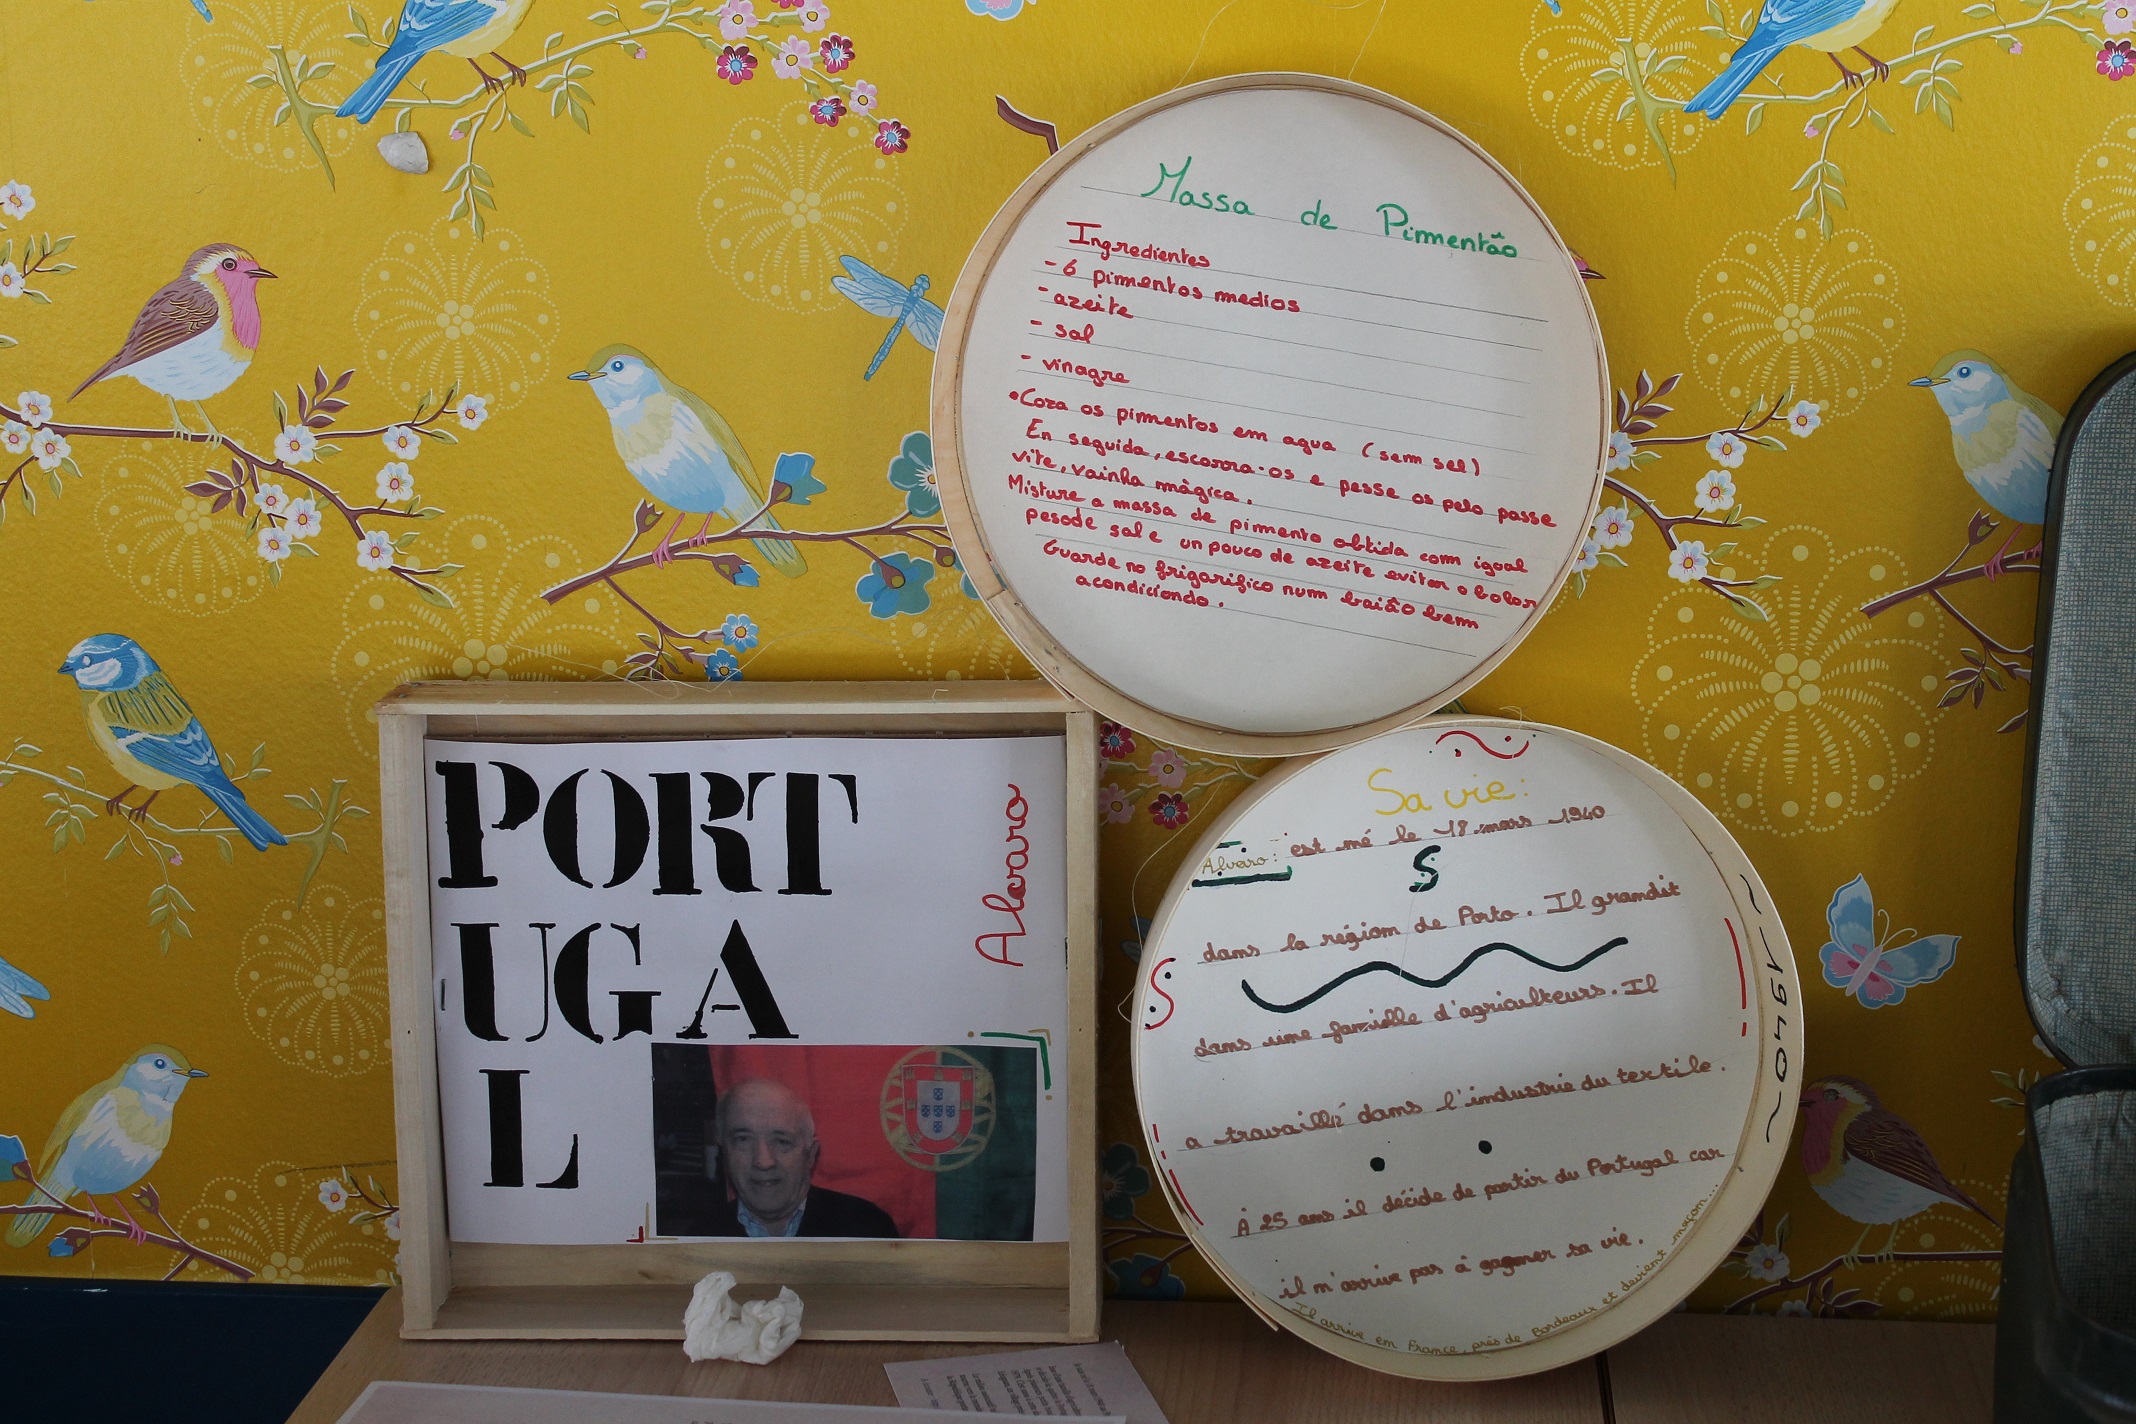 Massa de Pirmentão
Ingredientes
- 6 pirmentos medios
- azeite
- sal
- vinagre
•Coza os pirmentos em agua (serm sel)
En seguida, escorra-os e pesse os pelo passe
vite, vainha màgica.
Misture a massa de pirmento obtida com igual
pesode sal e un pouco de azeite evitar o bolor
Guarde no frigarifico num baião bem
acondiciondo.
PORT
UGA
L
Alvaro
Sa vie:
Alvaro: est né le 18 mars 1940
S
dans la région de Porto. Il grandit
dans une famille d'agriculteurs. Il
a travaillé dans l'industrie du textile.
À 25 ans il décide de partir du Portugal car
il n'arrive pas à gagner sa vie.
Il arrive en France, près de Bordeaux et devient maçon...
~1940~